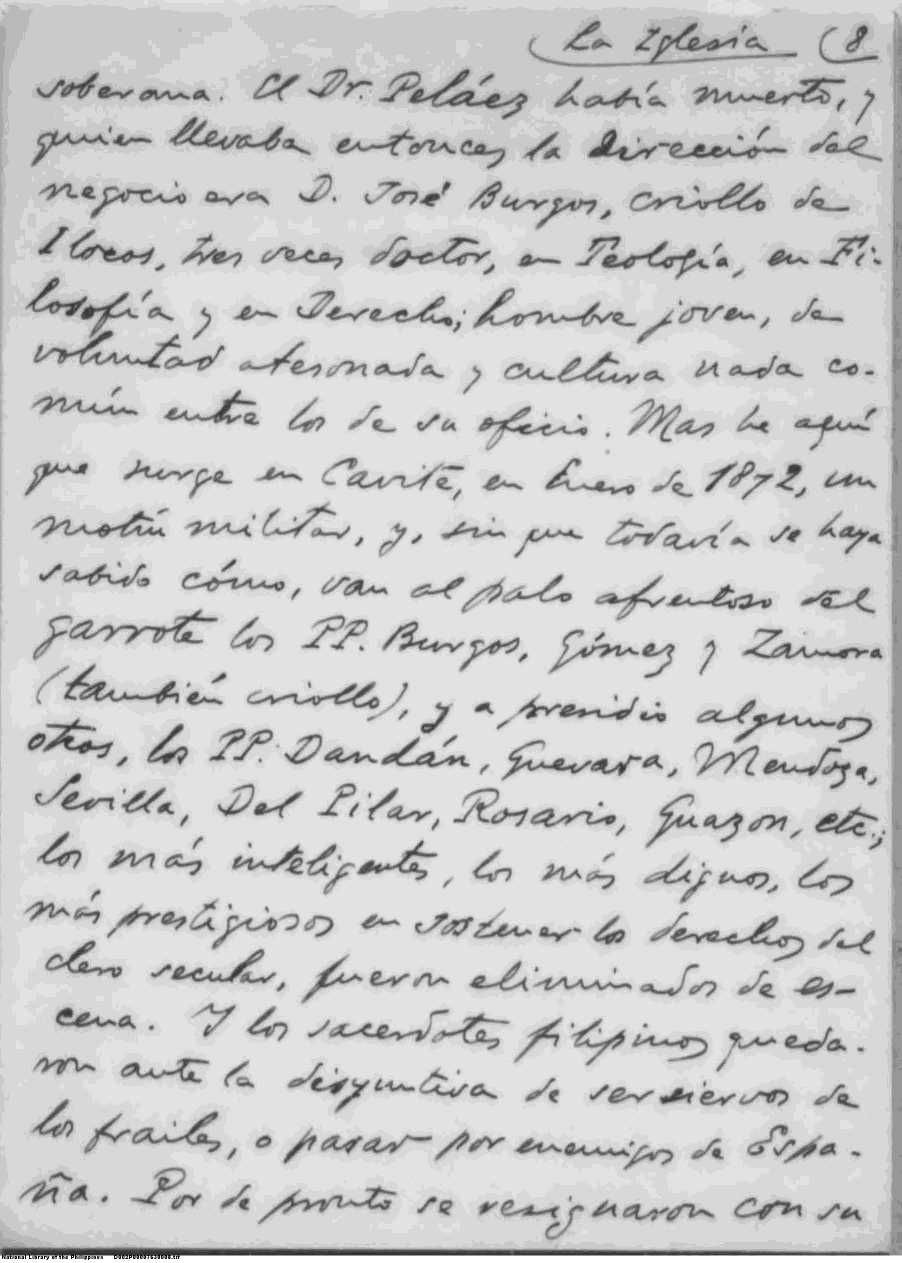 La Iglesia (8
soberana. El Dr. Peláez había muerto, y
quien llevaba entonces la dirección del
negocio era D. José Burgos, criollo de
Ilocos, tres veces doctor, en Teología, en Fi-
losofía y en Derecho; hombre joven, de
voluntad atesonada y cultura nada co-
mún entre los de su oficio. Mas he aquí
que surge en Cavite, en Enero de 1872, un
motín militar, y, sin que todavía se haya
sabido cómo, van al palo afrentoso del
garrote los PP. Burgos, Gómez y Zamora
(también criollo), y a presidio algunos
otros, los PP. Dandán, Guevara, Mendoza,
Sevilla, Del Pilar, Rosario, Guazon, etc.;
los más inteligentes, los más dignos, los
más prestigiosos en sostener los derechos del
clero secular, fueron eliminados de es-
cena. Y los sacerdotes filipinos queda-
ron ante la disyuntiva de ser siervos de
los frailes, o pasar por enemigos de Espa-
ña. Por de pronto se resignaron con su
National Library of the Philippines